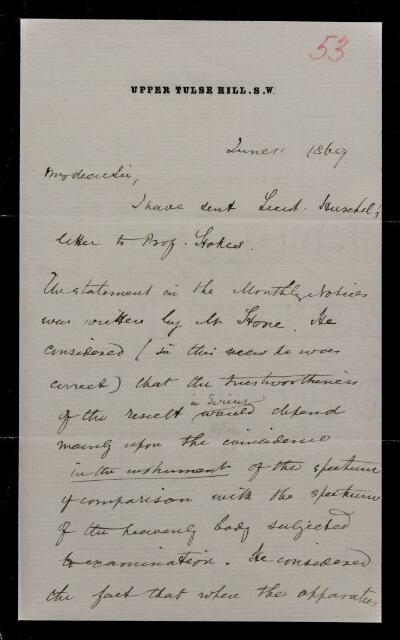 53
UPPER TULSE HILL. S. W.
June 11 1869
My dear Sir,
I have sent Lieut. Herschel's
letter to Prof. Stokes.
The statement in the Monthly Notices
was written by Mr Stone. He
considered (in this view he was
correct) that the trustworthiness
of the result in Sirius would depend
mainly upon the coincidence
in the instrument of the spectrum
of comparison with the spectrum
of the heavenly body subjected
to examination. He considered
the fact that where the apparatus